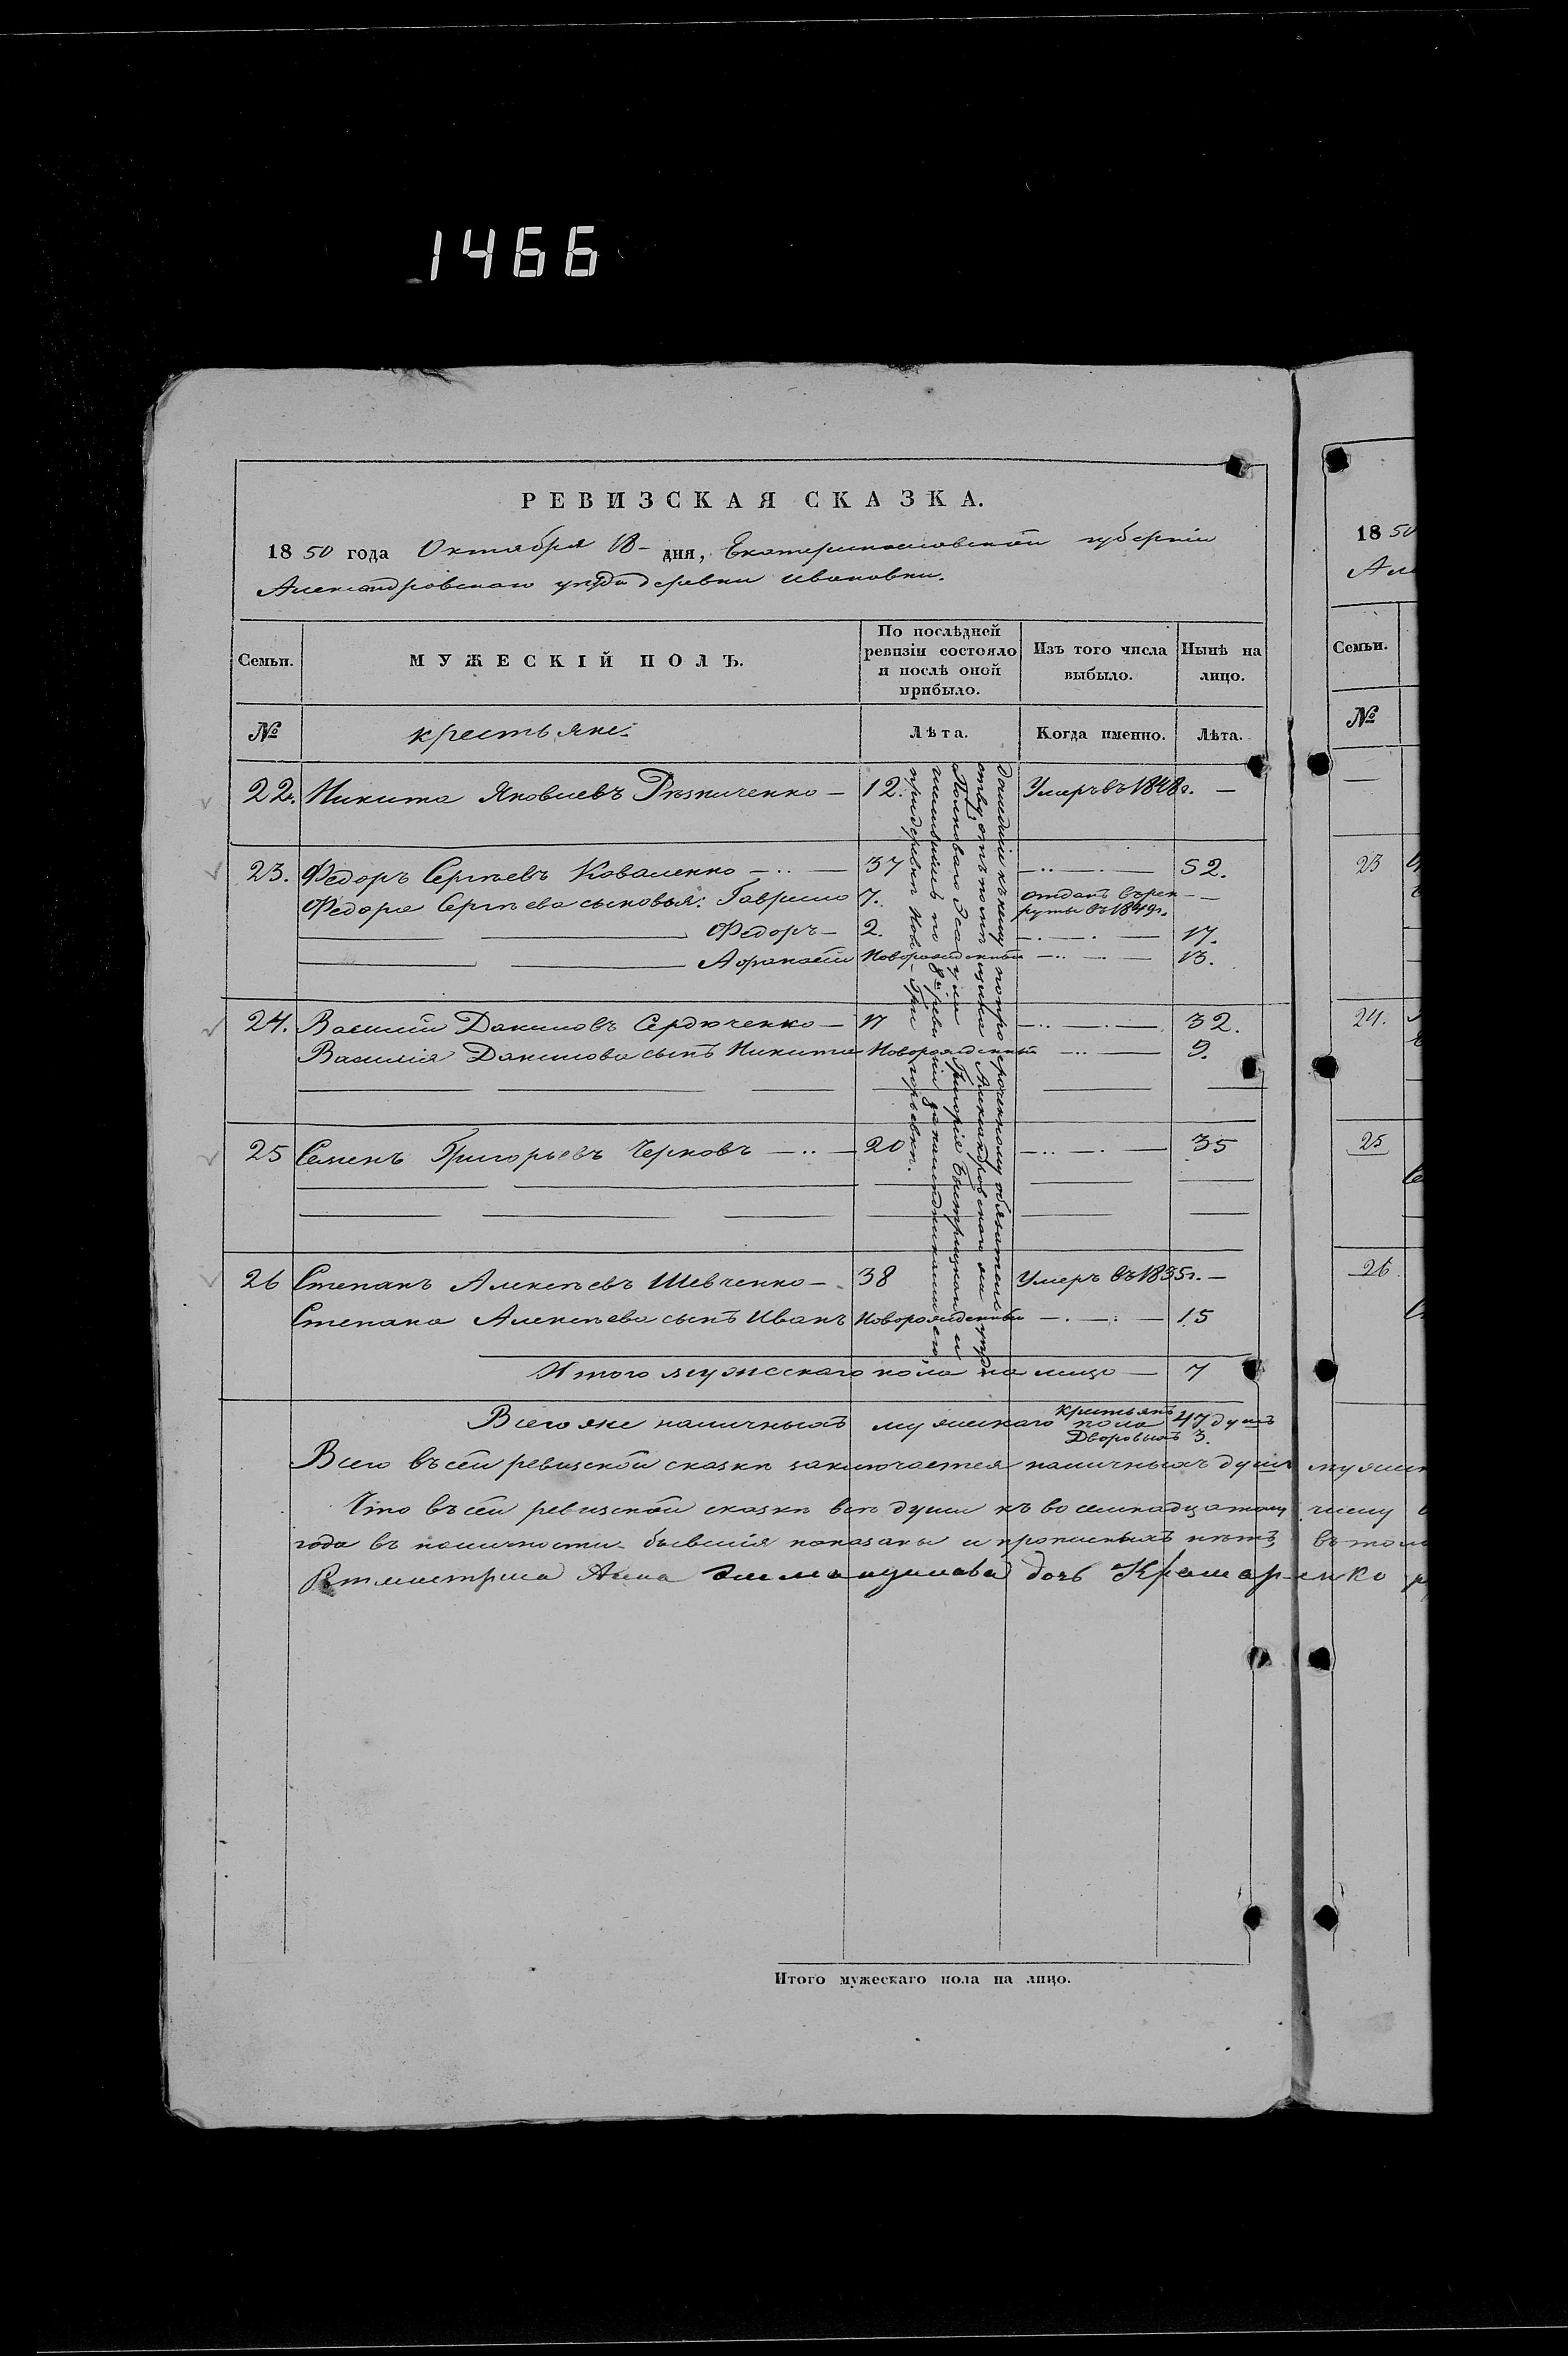 1466
РЕВИЗСКАЯ СКАЗКА.
1850 года Октября 18 дня, Екатеринославской губерніи
Александровскаго уѣзда деревни Ивановки.
Семьи.
МУЖЕСКІЙ ПОЛЪ.
По послѣдней ревизіи состояло и послѣ оной прибыло.
Изъ того числа выбыло.
Нынѣ на лицо.
№
крестьяне.
Лѣта.
Когда именно.
Лѣта.
22. Никита Яковлевъ Рѣзниченко — 12. Умеръ въ 1848 г. —
23. Федоръ Сергѣевъ Коваленко — 37 — 52.
Федора Сергѣева сыновья: Гаврило 7. отданъ въ рекруты въ 1849 г. —
Федоръ — 2. — 17.
Афанасій Новорожденный — 13.
24. Василій Даниловъ Сердюченко — 17 — 32.
Василія Данилова сынъ Никита Новорожденный — 9.
25 Семенъ Григорьевъ Черновъ — 20 — 35
26 Степанъ Алексѣевъ Шевченко — 38 Умеръ въ 1835 г. —
Степана Алексѣева сынъ Иванъ Новорожденный — 15
дошедшіи къ нему по просроченному обязательству, отъ помѣщика Александровскаго уѣзда
Полковаго Эсаула Григорія и
по 8й ревизіи за наслѣдниками его
при деревнѣ Ново-Григорьевкѣ.
Итого мужескаго пола на лицо — 7
Всего же наличныхъ мужескаго пола крестьянъ 47 душъ
Дворовыхъ 3.
Всего въ сей ревизской сказкѣ заключается наличныхъ душъ
Что въ сей ревизской сказкѣ всѣ души къ восемнадцатому числу
года въ наличности бывшія показаны и прописныхъ нѣтъ, въ
Ротмистрша Анна дочь Крамаренко
Итого мужескаго пола на лицо.
1850
Але
Семьи.
№
23
24.
25
26